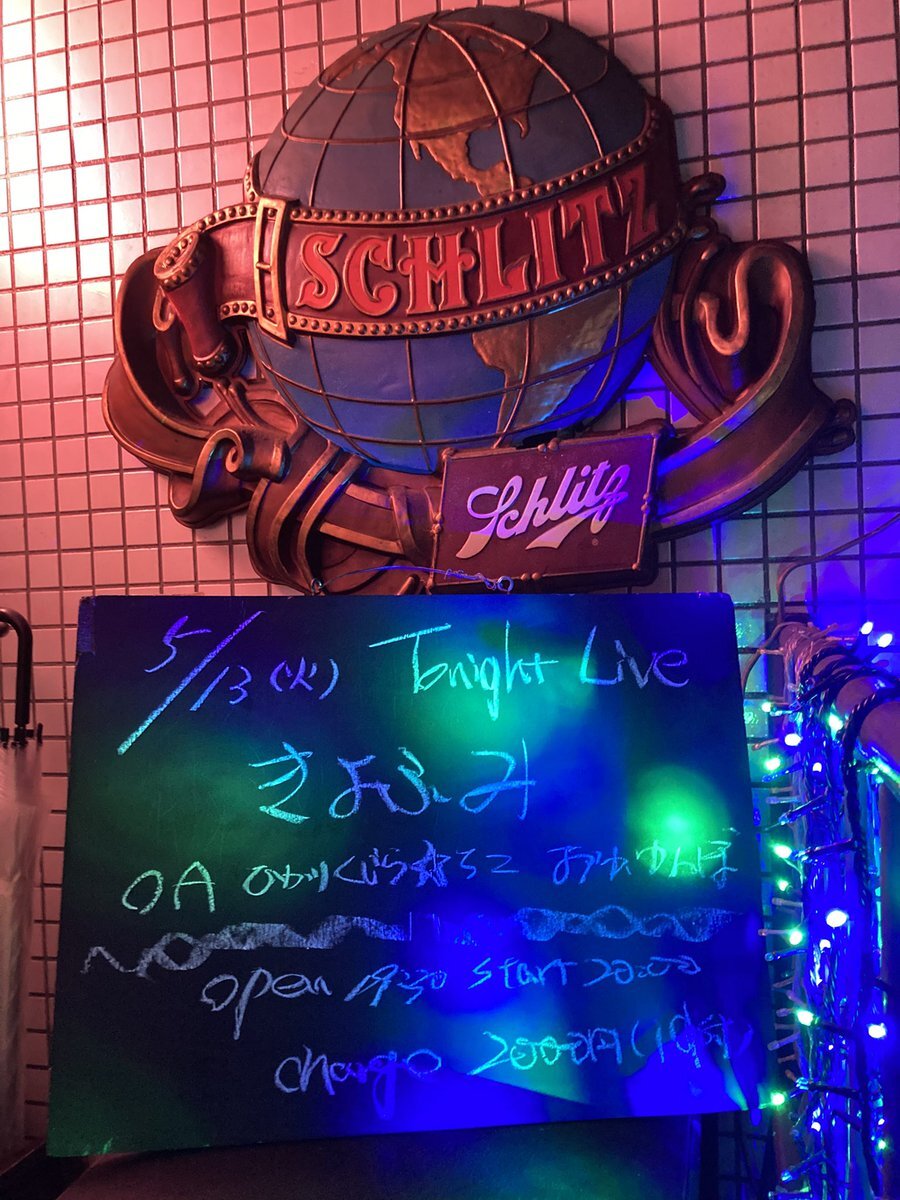 SCHLITZ
Schlitz
5/13(火) Tonight Live
きよふみ
OA ひかりくじら☆ろこ
open 19:30 start 20:00
charge 2000円(